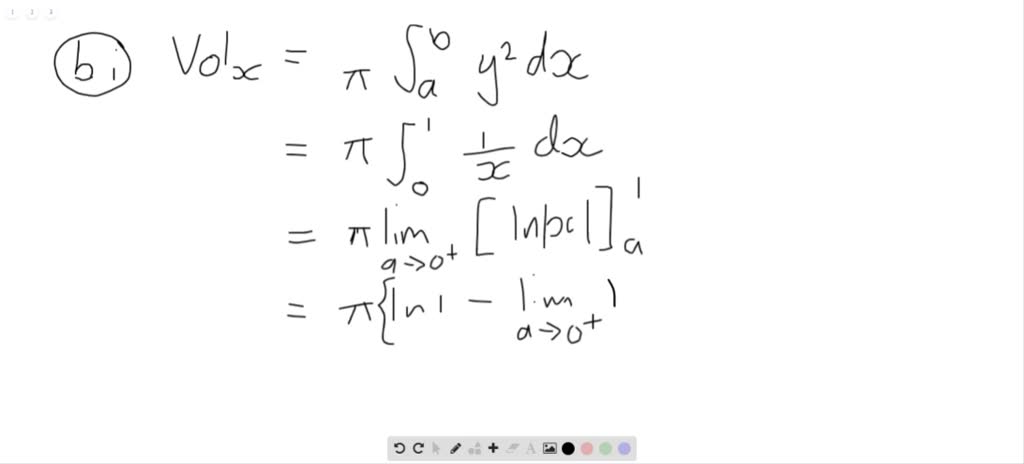 bi Volx = π ∫ₐᵇ y² dx
= π ∫₀¹ 1/x dx
= π lim a→0⁺ [ln|x|]ₐ¹
= π{ln 1 − lim a→0⁺